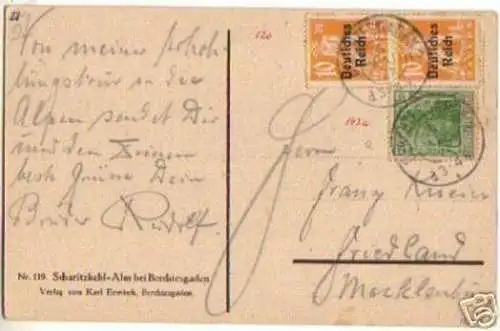 Von meiner Erhoh-
lungstour in den
Alpen sendet Dir
und den Deinen
beste Grüsse Dein
Bruder Rudolf.
Nr. 119. Scharitzkehl-Alm bei Berchtesgaden
Verlag von Karl Ermisch, Berchtesgaden.
120
Deutsches
Reich
10
Deutsches
Reich
10
143a
Herrn
Franz
Friedland
Mecklenburg